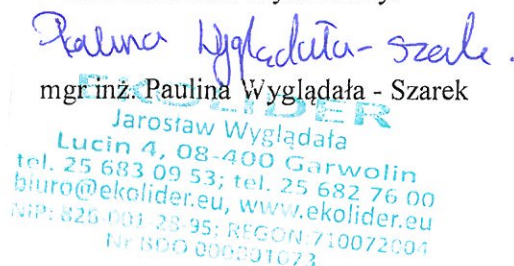 Paulina Wyglądała-Szarek.
mgr inż. Paulina Wyglądała - Szarek
EKOLIDER
Jarosław Wyglądała
Lucin 4, 08-400 Garwolin
tel. 25 683 09 53; tel. 25 682 76 00
biuro@ekolider.eu, www.ekolider.eu
NIP: 826-001-28-95; REGON:710072004
Nr BDO 000001073